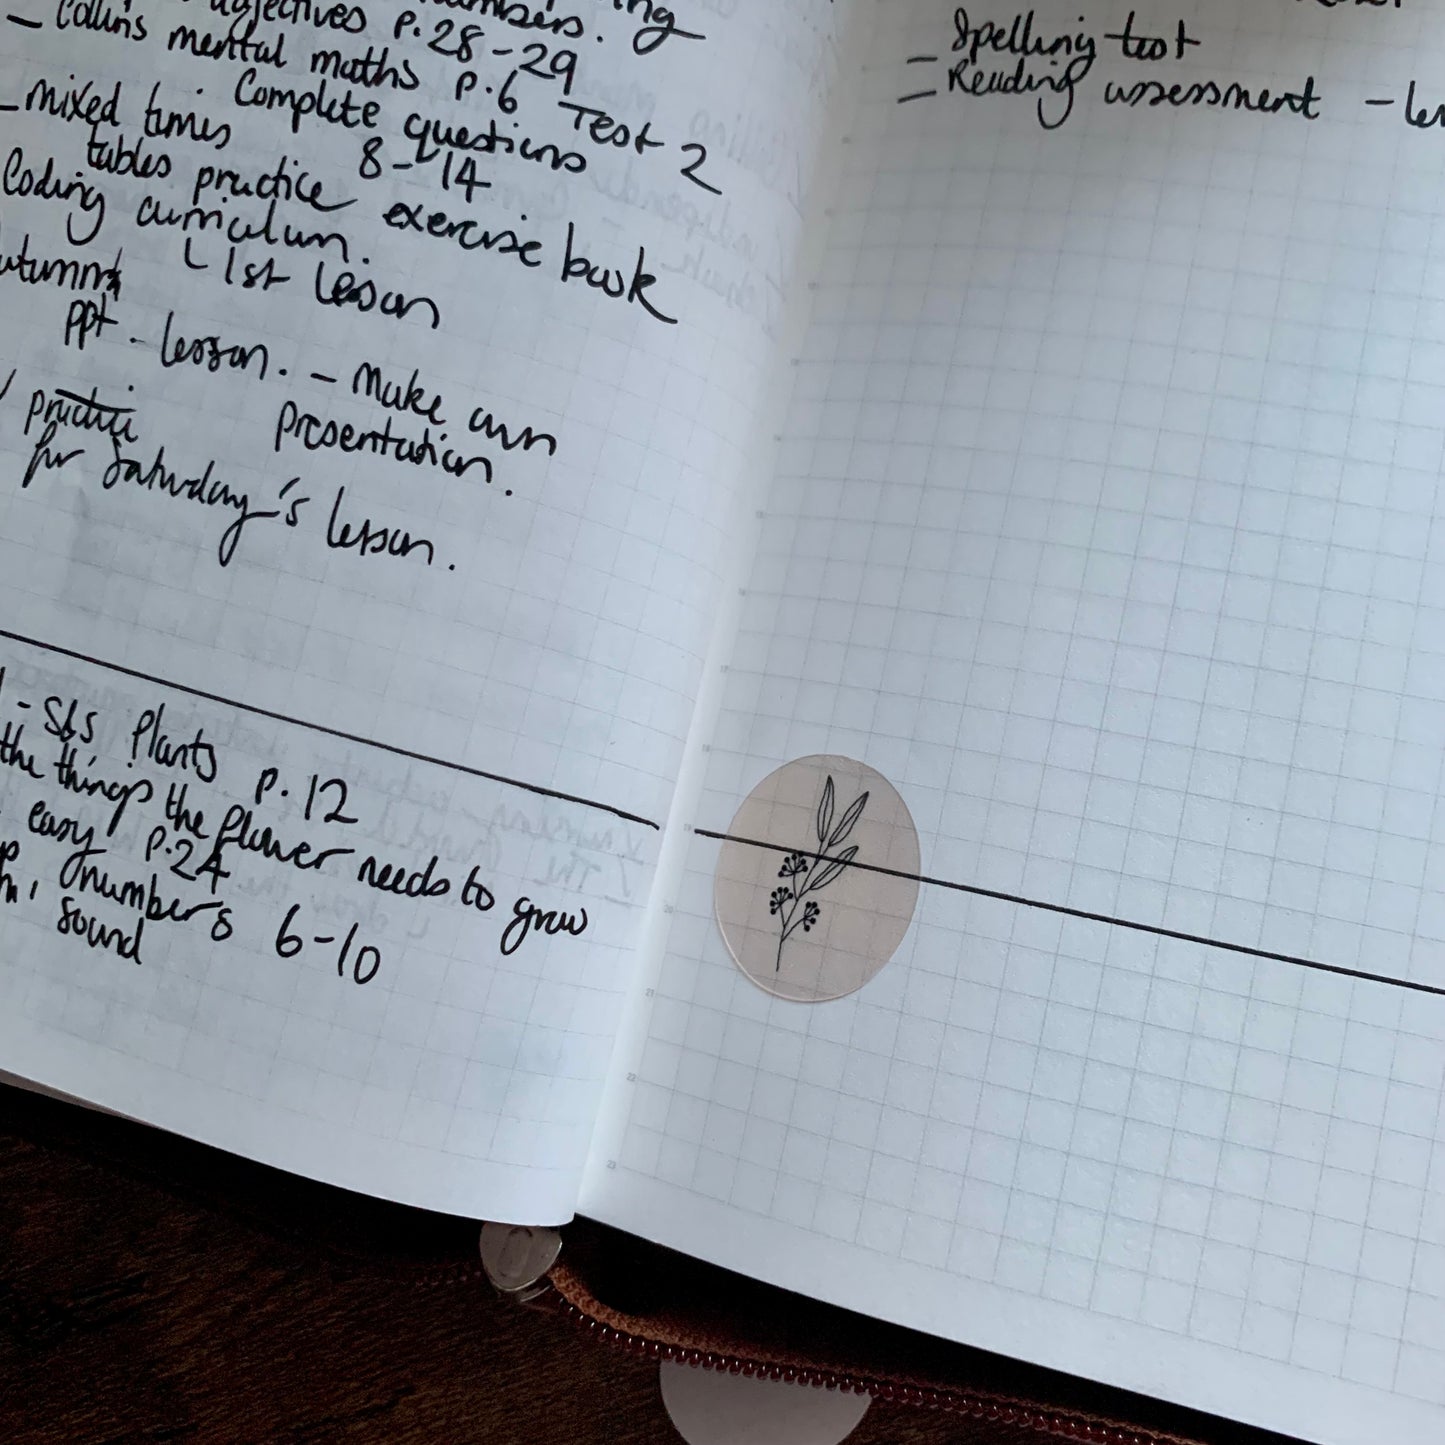 adjectives p.28-29
- Collins mental maths p.6 Test 2
Complete questions
8-14
- mixed times
tables practice exercise book
Coding curriculum.
1st lesson
ppt - lesson. - Make own
presentation.
practice
for Saturday's lesson.
- Plants p.12
the things the flower needs to grow
easy p.24
numbers 6-10
sound
- Spelling test
- Reading assessment -
19
20
21
22
23